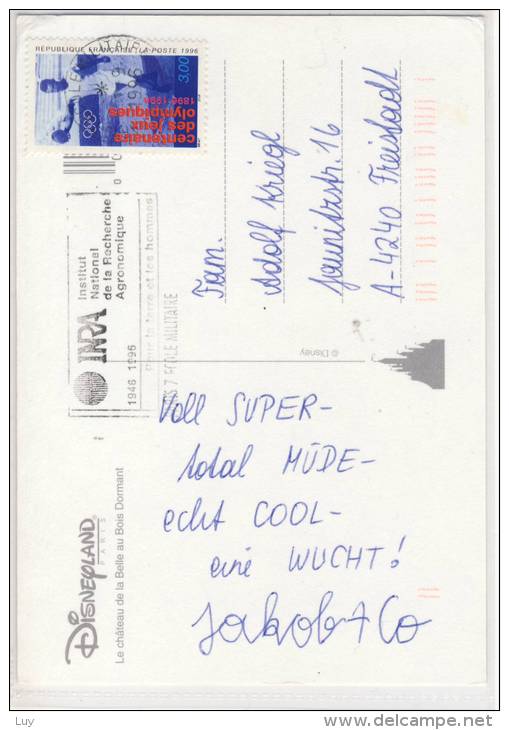 RÉPUBLIQUE FRANÇAISE LA POSTE 1996
3,00
centenaire
des jeux
olympiques
1896-1996
1996
INRA
Institut
National
de la Recherche
Agronomique
1946 1996
Pour la terre et les hommes
7 ECOLE MILITAIRE
Fam.
Adolf Kriegl
Jaunitzstr. 16
A-4240 Freistadt
© Disney
Voll SUPER-
total MÜDE-
echt COOL-
eine WUCHT!
Jakob + Co
DISNEYLAND
PARIS
Le château de la Belle au Bois Dormant
Luy
www.delcampe.net